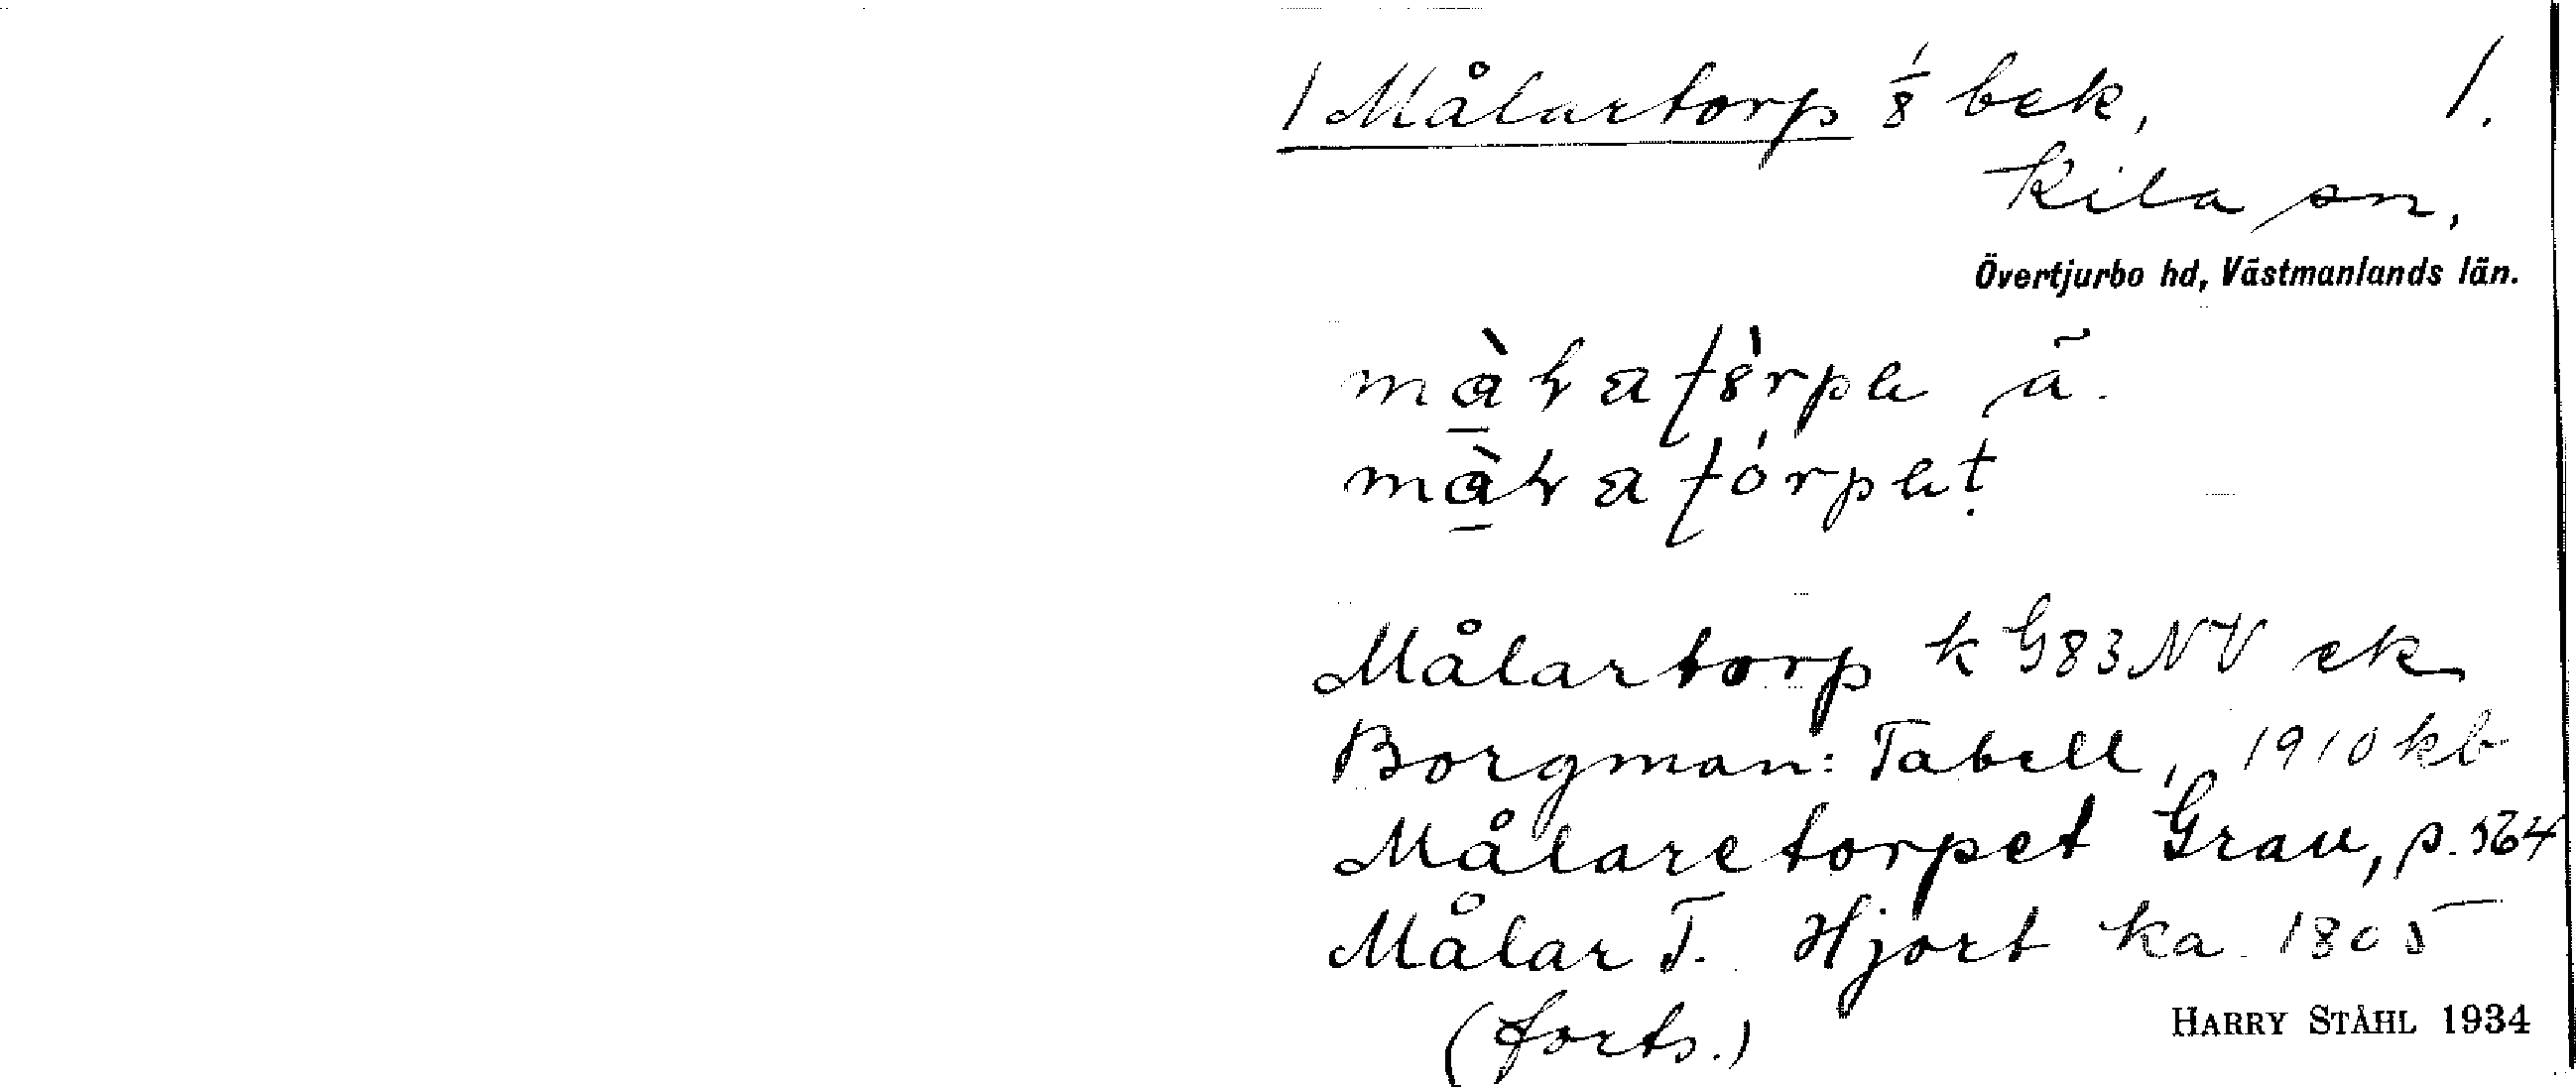 1 Målartorp 1/8 bek, 1.
Kila sn,
Övertjurbo hd, Västmanlands län.
Målartorp k G83NV ek
Borgman: Tabell, 1910 kb
Målaretorpet Grau, s. 564
Målar T. Hjort ka 1805
(forts.)
HARRY STÅHL 1934